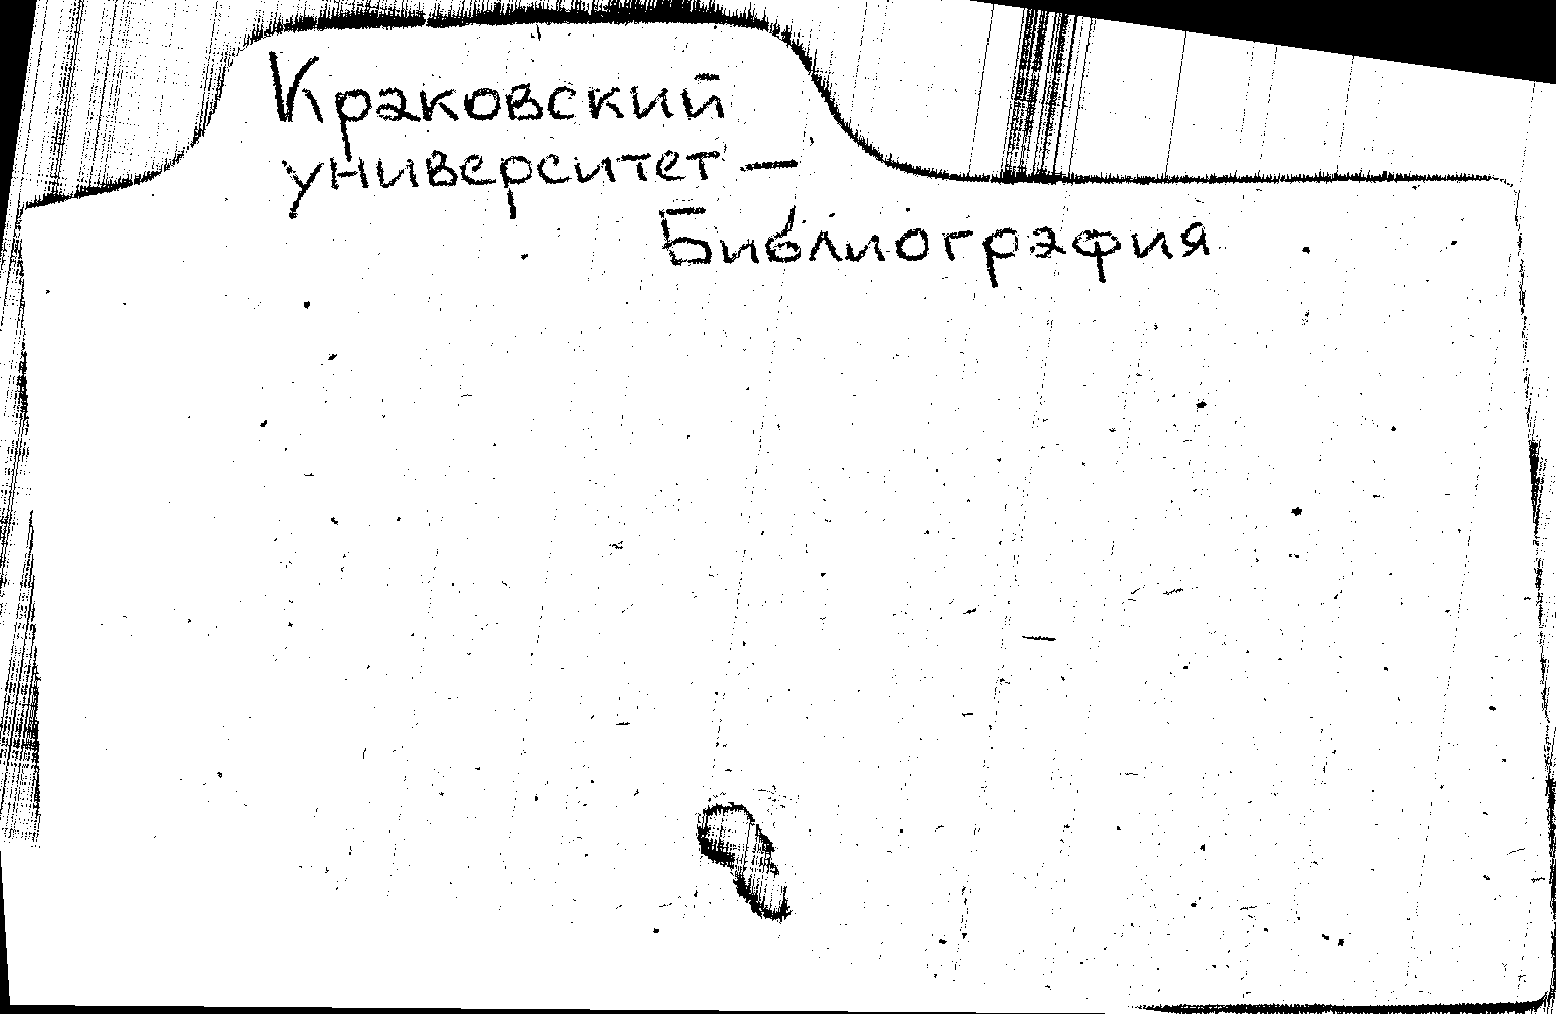 Краковский
университет —
Библиография